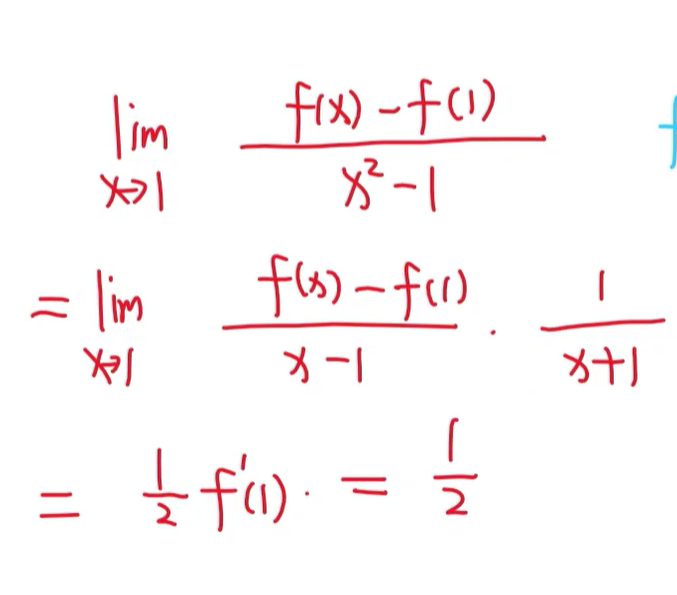 lim x→1 (f(x) - f(1)) / (x² - 1)
= lim x→1 (f(x) - f(1)) / (x - 1) · 1 / (x+1)
= 1/2 f'(1) · = 1/2